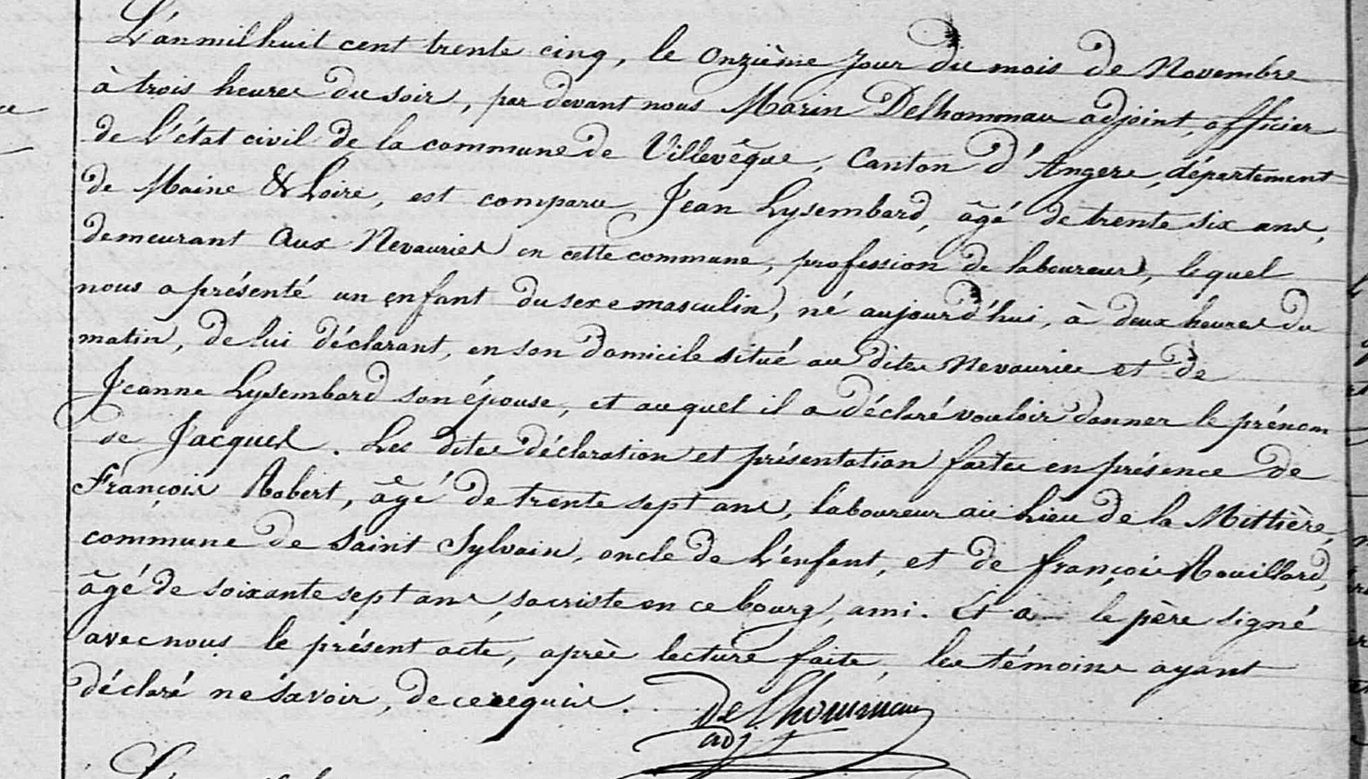 L'an mil huit cent trente cinq, le onzième jour du mois de Novembre
à trois heures du soir, par devant nous Marin Delhommau adjoint, officier
de l'état civil de la commune de Villevêque, Canton d'Angers, département
de Maine & Loire, est comparu Jean Lysembard, âgé de trente six ans,
demeurant aux Nevauries en cette commune, profession de laboureur, lequel
nous a présenté un enfant du sexe masculin, né aujourd'hui, à deux heures du
matin, de lui déclarant, en son domicile situé au dites Nevauries et de
Jeanne Lysembard son épouse, et auquel il a déclaré vouloir donner le prénom
de Jacques. Les dites déclaration et présentation faites en présence de
François Robert, âgé de trente sept ans, laboureur au lieu de la Mettière,
commune de Saint Sylvain, oncle de l'enfant, et de françois Rouillard,
âgé de soixante sept ans, sacriste en ce bourg, ami. Et a le père signé
avec nous le présent acte, après lecture faite, les témoins ayant
déclaré ne savoir, de ce requis.
Delhommau
adj